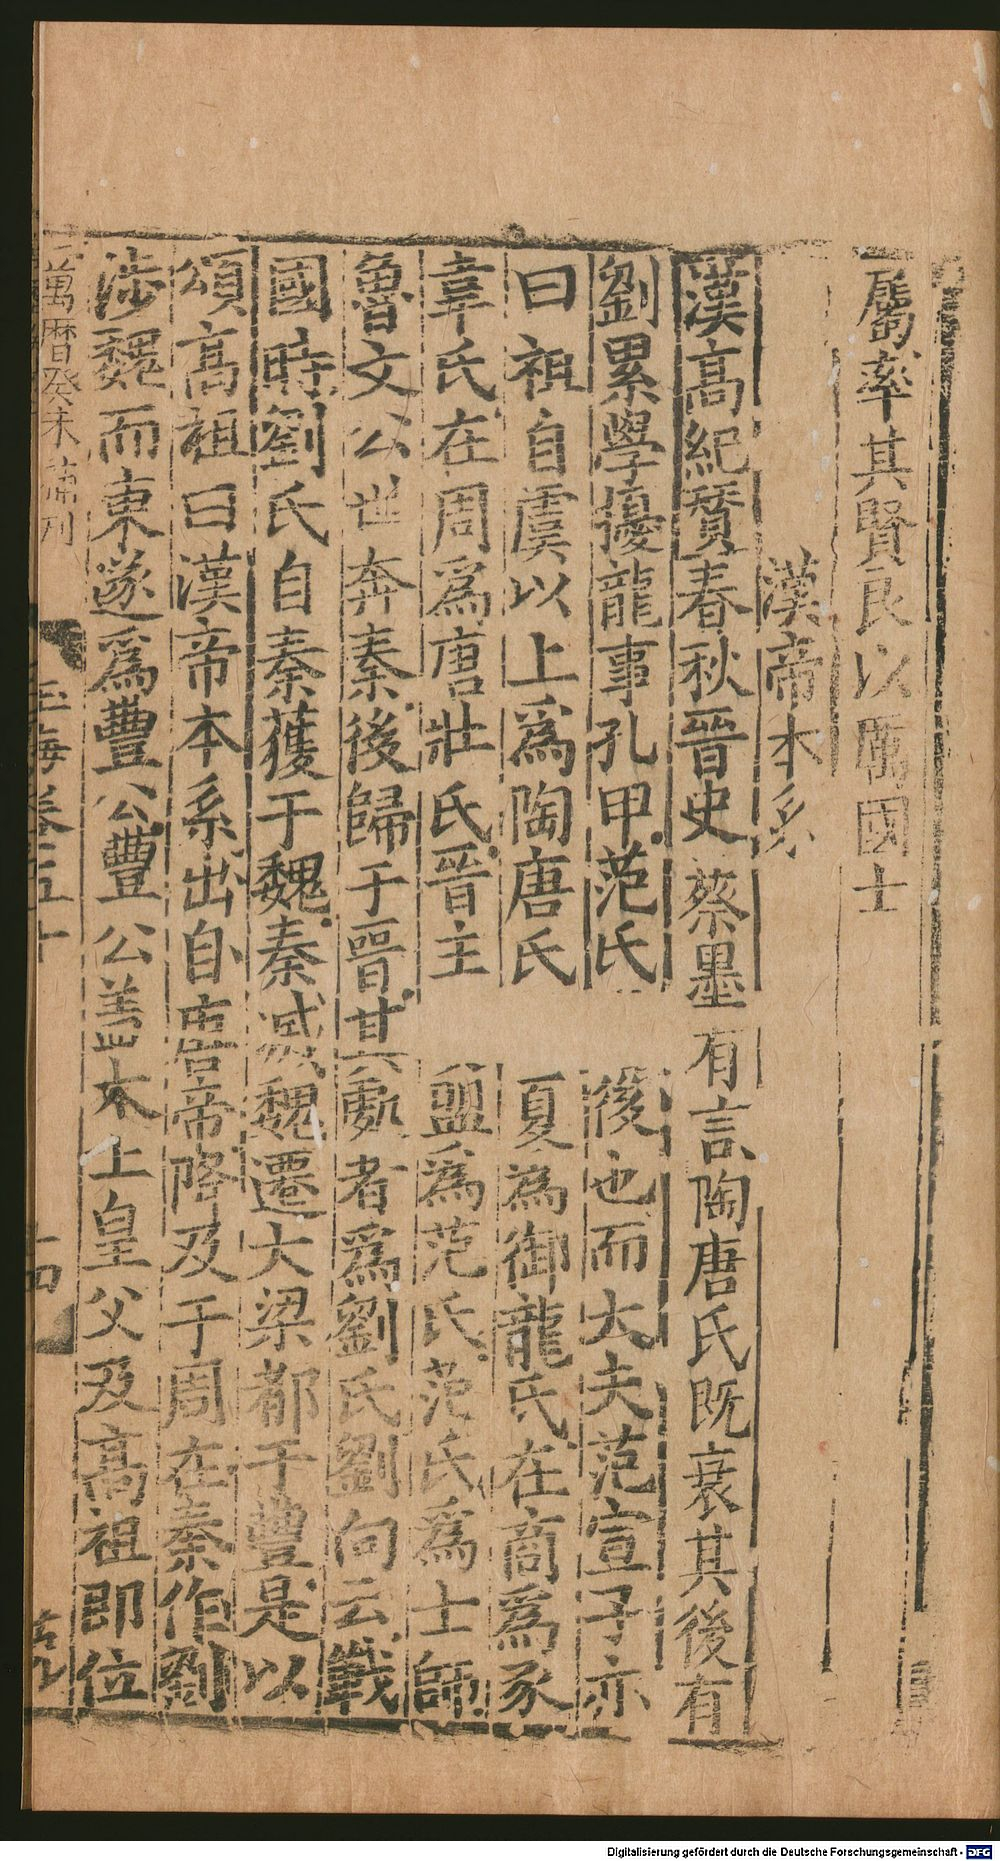 屬率其賢良以厲國士
漢帝本系
漢高紀贊春秋晉史蔡墨有言陶唐氏既衰其後有
劉累學擾龍事孔甲范氏 後也而大夫范宣子亦
曰祖自虞以上爲陶唐氏 夏爲御龍氏在商爲豕
韋氏在周爲唐杜氏晉主 盟爲范氏范氏爲士師
魯文公世奔秦後歸于晉其處者爲劉氏劉向云戰
國時劉氏自秦獲于魏秦滅魏遷大梁都于豐是以
頌高祖曰漢帝本系出自唐帝降及于周在秦作劉
涉魏而東遂爲豐公豐公盖太上皇父及高祖即位
萬曆癸未補刊
玉海卷五十
十四
Digitalisierung gefördert durch die Deutsche Forschungsgemeinschaft - DFG